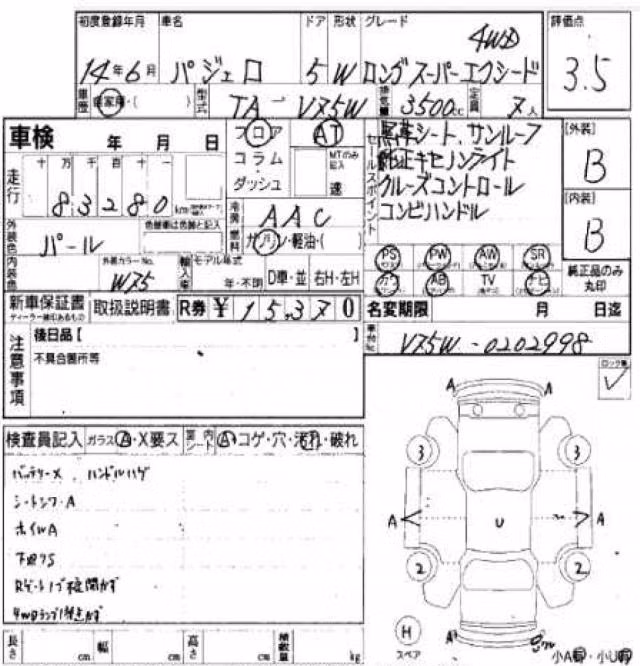 初度登録年月 車名 ドア 形状 グレード 評価点
14年6月 パジェロ 5 W ロングスーパーエクシード 4WD 3.5
車歴 自家用・( ) 型式 TA-V75W 排気量 3500cc 定員 7人
車検 年 月 日
フロア AT
コラム・ダッシュ MTのみ記入 速
セールスポイント
黒革シート、サンルーフ
純正キセノンライト
クルーズコントロール
コンビハンドル
[外装] B
[内装] B
走行 十 万 千 百 十 一
83280 km
冷房 AAC
燃料 ガソリン・軽油・( )
外装色 パール 色替車は色替と記入
内装色 外装カラーNo. W75
輸入車 モデル年式 年・不明 D車・並 右H・左H
PS PW AW SR
エアB TV ナビ
純正品のみ丸印
新車保証書 ディーラー捺印あるもの 取扱説明書 R券 ¥ 15,370
名変期限 月 日迄
車台No. V75W-0202998
注意事項
後日品【 】
不具合箇所等
ロック無
検査員記入 ガラス A・X要ス 室内シート A コゲ・穴・汚れ・破れ
バッテリーX ハンドルハゲ
シートシワ・A
ホイルA
下回りS
4WDランプ
A A
3 3
A U A
2 2
H
スペア
A
長さ cm 幅 cm 高さ cm 積載量 kg